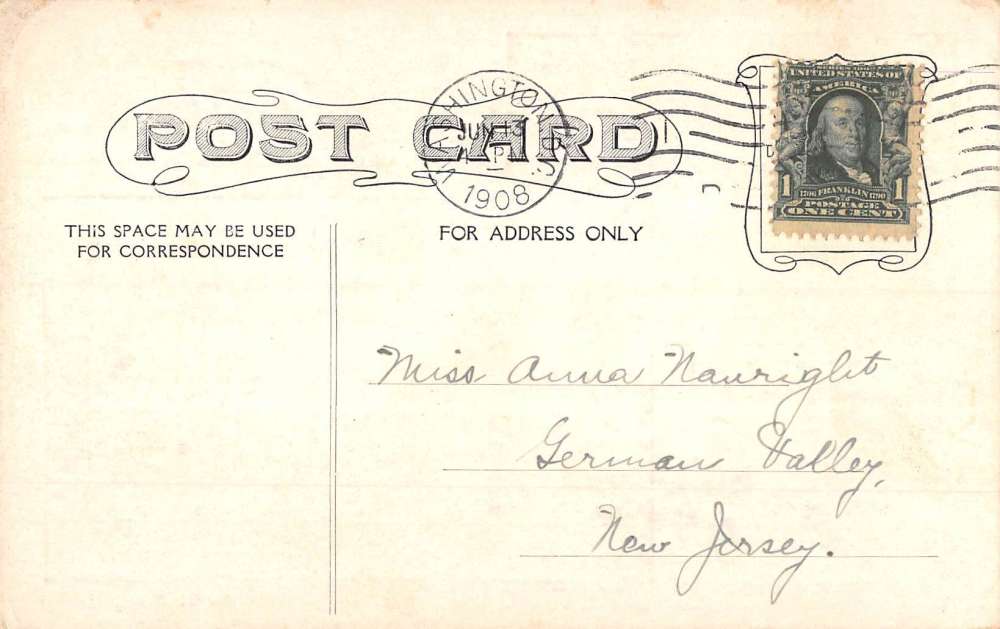 POST CARD
WASHINGTON, D.C.
JUN 13
4 - P
1908
UNITED STATES OF
AMERICA
1 1706 FRANKLIN 1790 1
POSTAGE
ONE CENT
THIS SPACE MAY BE USED
FOR CORRESPONDENCE
FOR ADDRESS ONLY
Miss Anna Nauright
German Valley,
New Jersey.